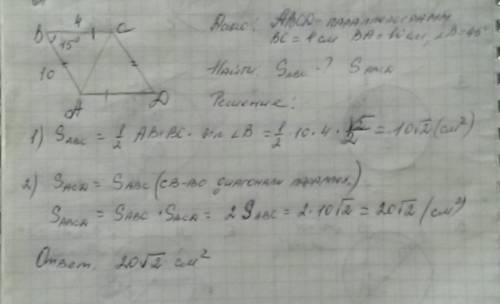 B 4 C
45°
10
A D
Дано: ABCD - параллелограмм
BC = 4 см BA = 10 см, ∠B = 45°
Найти: S_ABC - ? S_ABCD
Решение:
1) S_ABC = 1/2 AB·BC · sin ∠B = 1/2 · 10 · 4 · √2/2 = 10√2 (см²)
2) S_ACD = S_ABC (диагонали
S_ABCD = S_ABC · S_ACD = 2 S_ABC = 2 · 10√2 = 20√2 (см²)
Ответ. 20√2 см²